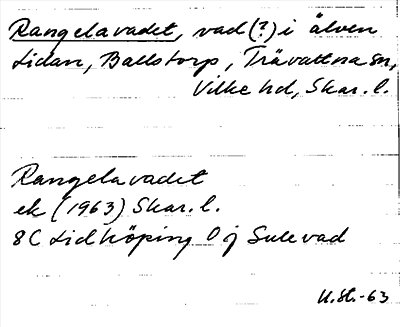 Rangelavadet, vad (?) i älven
Lidan, Ballstorp, Trävattna sn,
Vilke hd, Skar. l.
Rangelavadet
ek (1963) Skar. l.
8C Lidköping 0 j Sulevad
-63